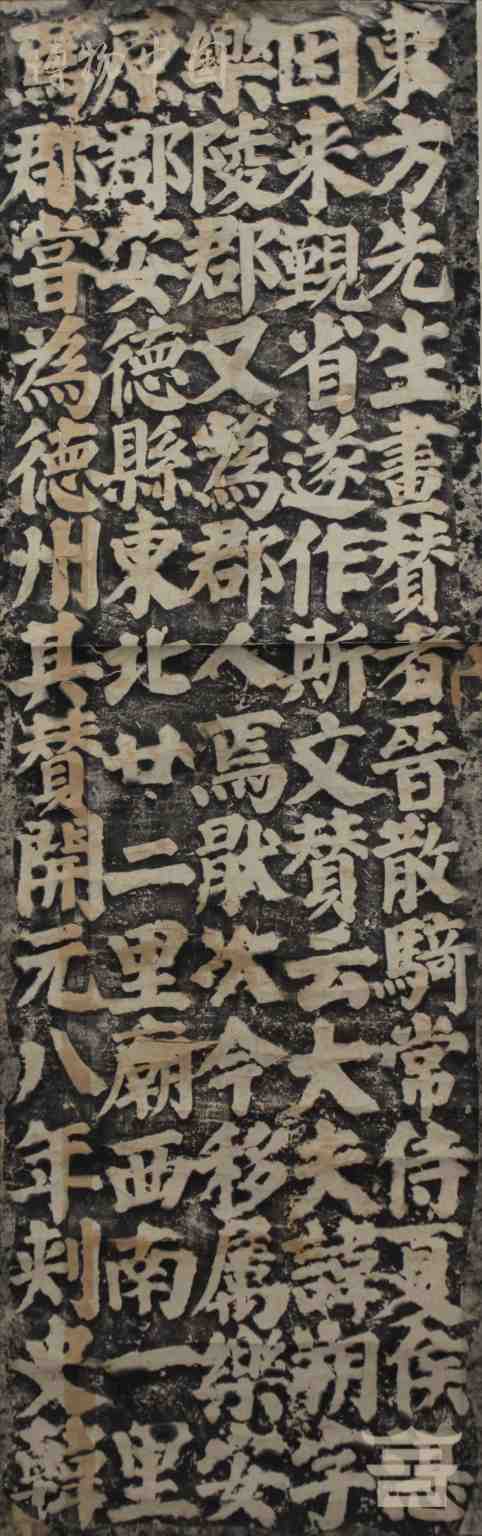 東方先生畫賛者晉散騎常侍夏侯
因来覲省遂作斯文賛云大夫諱朔字
樂陵郡又為郡人焉猒次今移属樂安
原郡安德縣東北廿二里廟西南一里
焉郡嘗為德州其賛開元八年刾史韓
博物中国